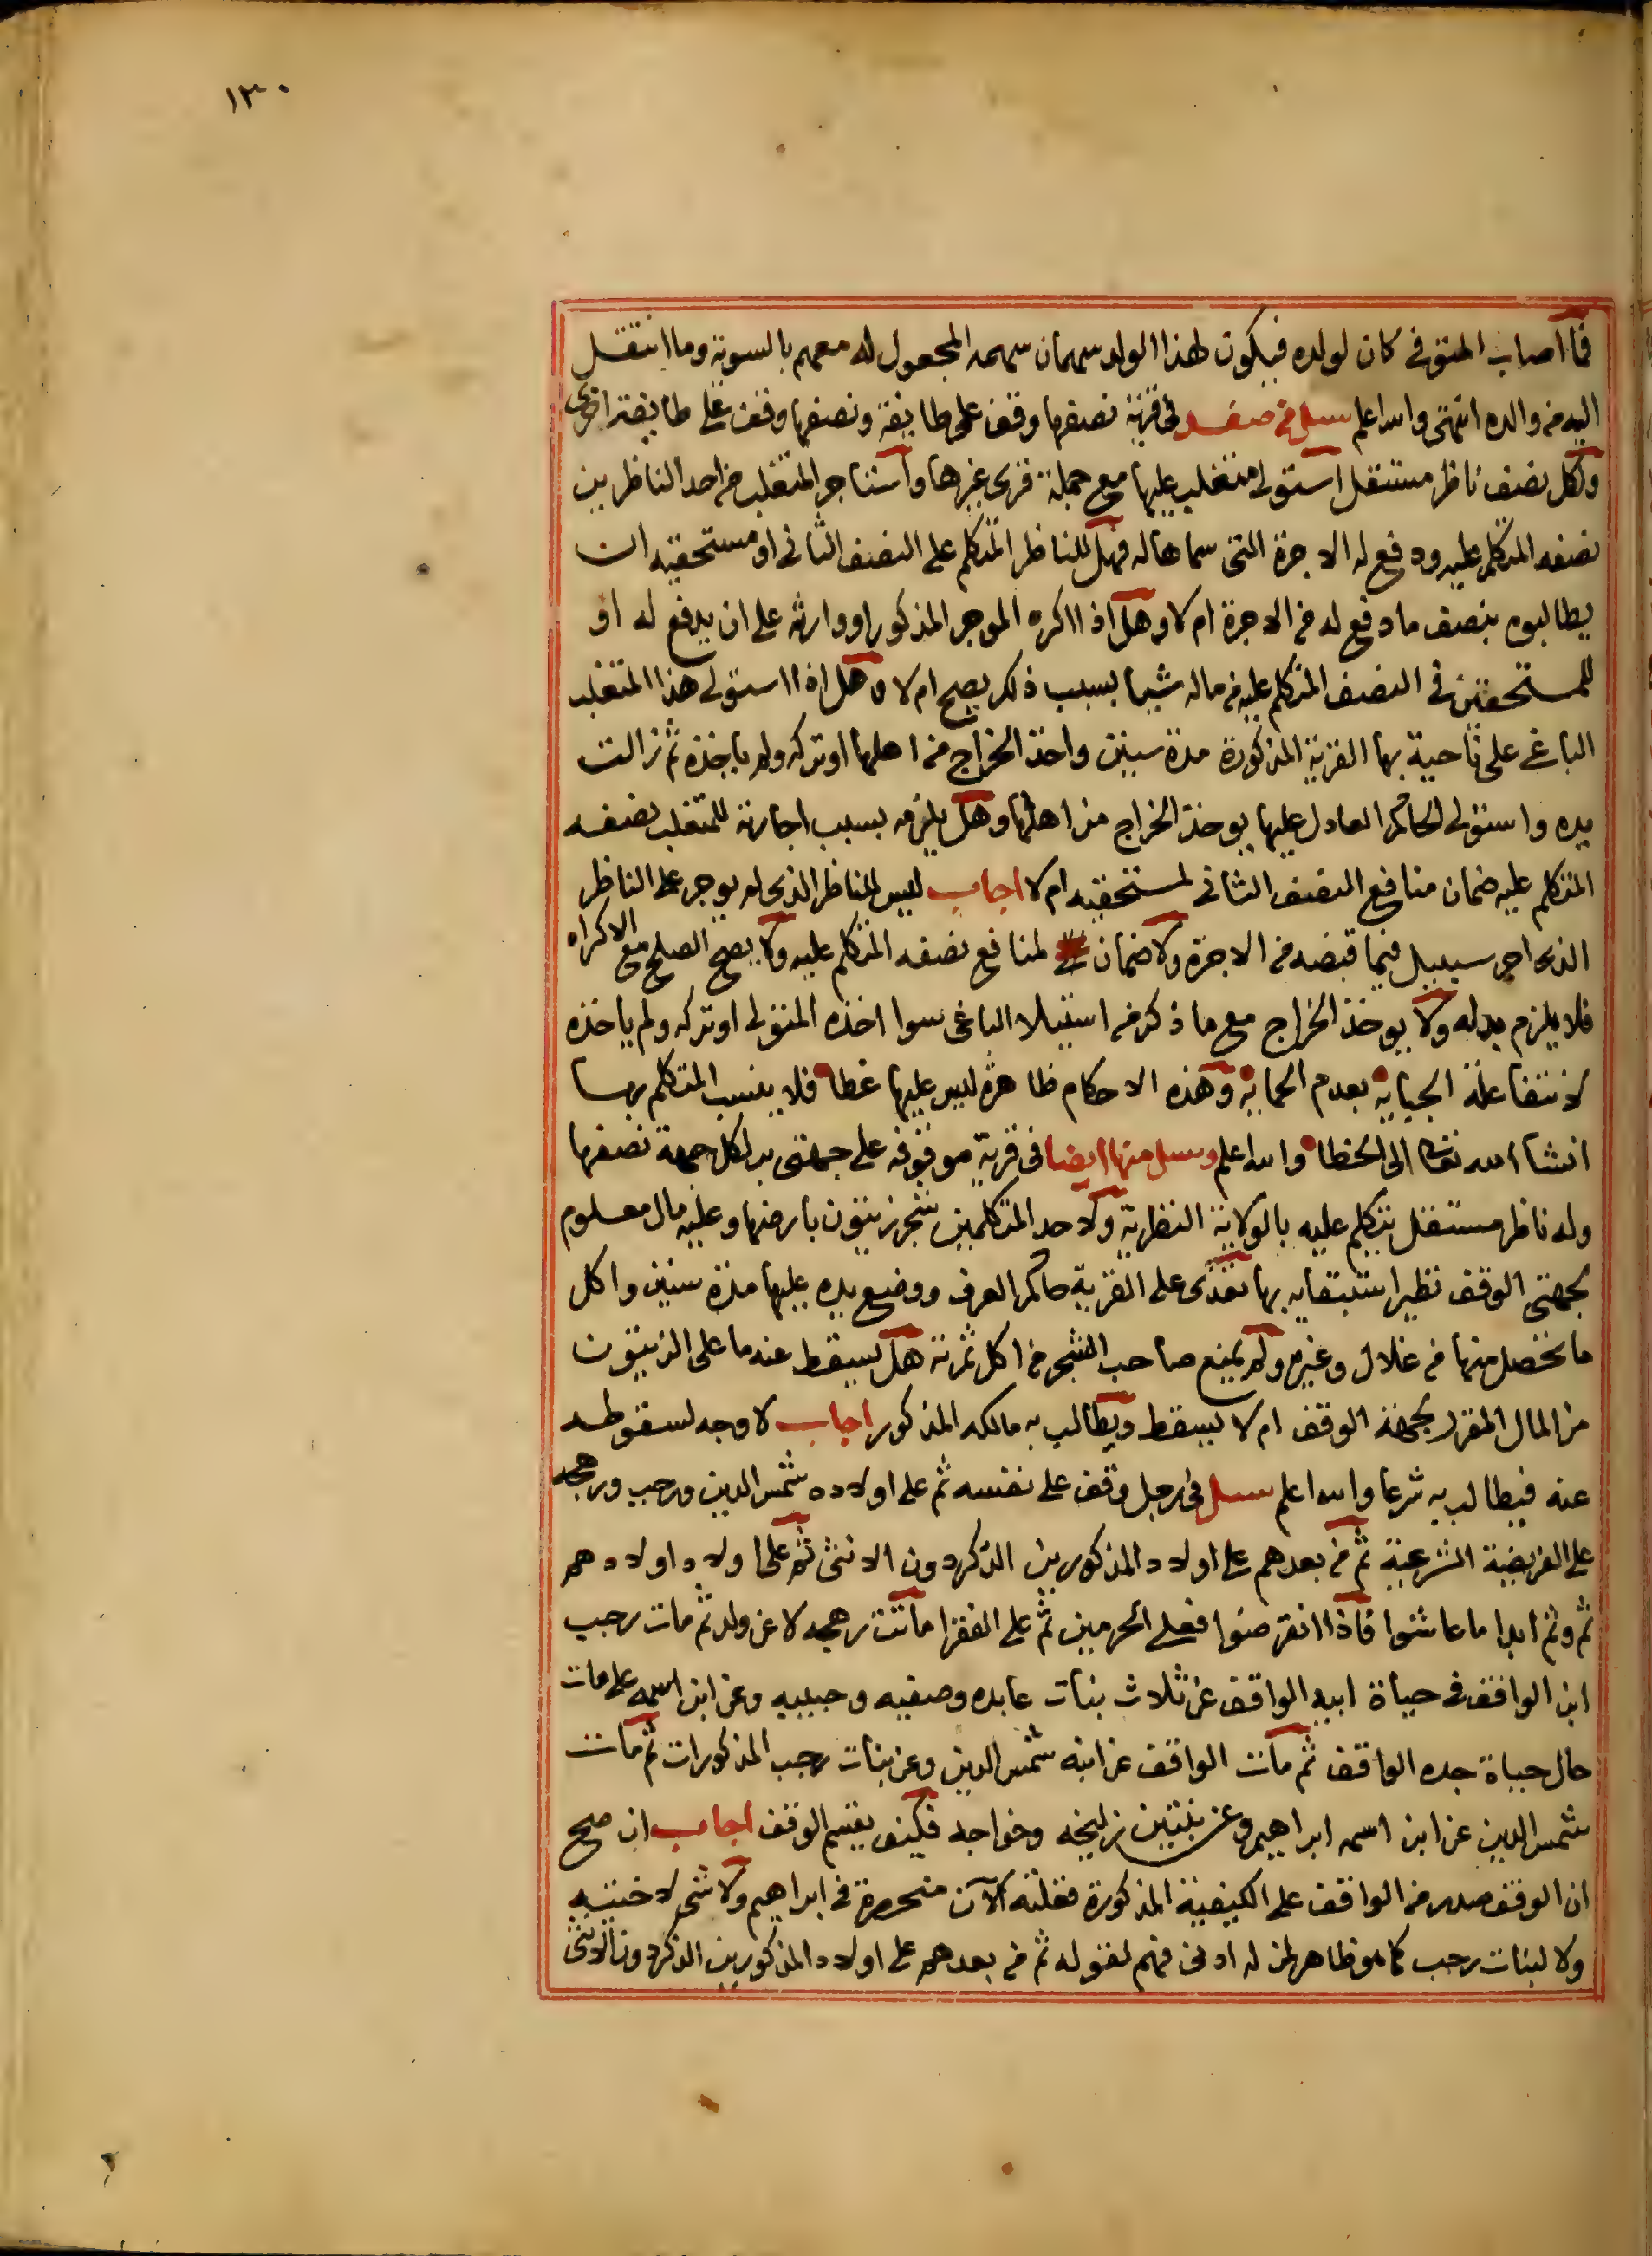 ١٣٠
فما اصاب المتوفى كان لولده فيكون لهذا الولد سهمان سهمه المجعول له معهم بالسوية وما انتقل
اليه من والده انتهى والله اعلم سئل من صفد في قرية نصفها وقف على طايفة ونصفها وقف على طايفة اخرى
ولكل نصف ناظر مستقل استولى متغلب عليها مع جملة قرى غيرها واستاجر المتغلب من احد الناظرين
نصفه المتكلم عليه ودفع له الاجرة التى سماها له فهل للناظر المتكلم على النصف الثانى او مستحقيه ان
يطالبوه بنصف ما دفع له من الاجرة ام لا وهل اذا اكره الموجر المذكور او وارثه على ان يدفع له او
للمستحقين في النصف المتكلم عليه من ماله شيا بسبب ذلك يصح ام لا وهل اذا استولى هذا المتغلب
الباغي على ناحية بها القرية المذكورة مدة سنين واخذ الخراج من اهلها او تركه ولم ياخذه ثم زالت
يده واستولى الحاكم العادل عليها يوخذ الخراج من اهلها وهل يلزمه بسبب اجارته للمتغلب نصفه
المتكلم عليه ضمان منافع النصف الثانى لمستحقيه ام لا اجاب ليس للناظر الذى لم يوجر على الناظر
الذى اجر سبيل فيما قبضه من الاجرة ولا ضمان لمنافع نصفه المتكلم عليه ولا يصح الصلح مع الاكراه
فلا يلزم بدله ولا يوخذ الخراج مع ما ذكر من استيلا الباغى سوا اخذه المتولى او تركه ولم ياخذه
لانتفا علة الجباية بعدم الحماية وهذه الاحكام ظاهرة ليس عليها غطا فلا ينسب المتكلم بها
انشا الله تعالى الى الخطا والله اعلم وسئل منها ايضا في قرية موقوفه على جهتى بر لكل جهة نصفها
وله ناظر مستقل يتكلم عليه بالولاية النظرية ولاحد المتكلمين شجر زيتون بارضها وعليه مال معلوم
لجهتى الوقف نظير استبقايه بها تعدى على القرية حاكم العرف ووضع يده عليها مدة سنين واكل
ما تحصل منها من غلال وغيره ولم يمنع صاحب الشجر من اكل ثمرته هل يسقط عنه ما على الزيتون
من المال المقرر لجهة الوقف ام لا يسقط ويطالب به مالكه المذكور اجاب لا وجه لسقوطه
عنه فيطالب به شرعا والله اعلم سئل في رجل وقف على نفسه ثم على اولاده شمس الدين ورجب ورحمه
على الفريضة الشرعية ثم من بعدهم على اولاد المذكورين الذكر دون الانثى ثم على اولاد اولادهم
ثم وثم ابدا ما عاشوا فاذا انقرضوا فعلى الحرمين ثم على الفقرا ماتت رحمه لا عن ولد ثم مات رجب
ابن الواقف في حياة ابيه الواقف عن ثلاث بنات عابده وصفيه وحبيبه وعن ابن اسمه على مات
حال حياة جده الواقف ثم مات الواقف عن ابنه شمس الدين وعن بنات رجب المذكورات ثم مات
شمس الدين عن ابن اسمه ابراهيم وعن بنتين زليخه وخواجه فكيف يقسم الوقف اجاب ان صح
ان الوقف صدر من الواقف على الكيفية المذكورة فغلته الآن منحصرة في ابراهيم ولا شى لاختيه
ولا لبنات رجب كما هو ظاهر لمن له ادنى فهم لقوله ثم من بعدهم على اولاد المذكورين الذكر دون الانثى